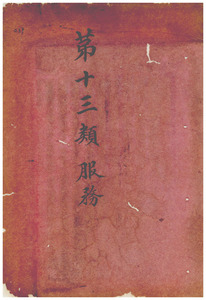 第十三類服務